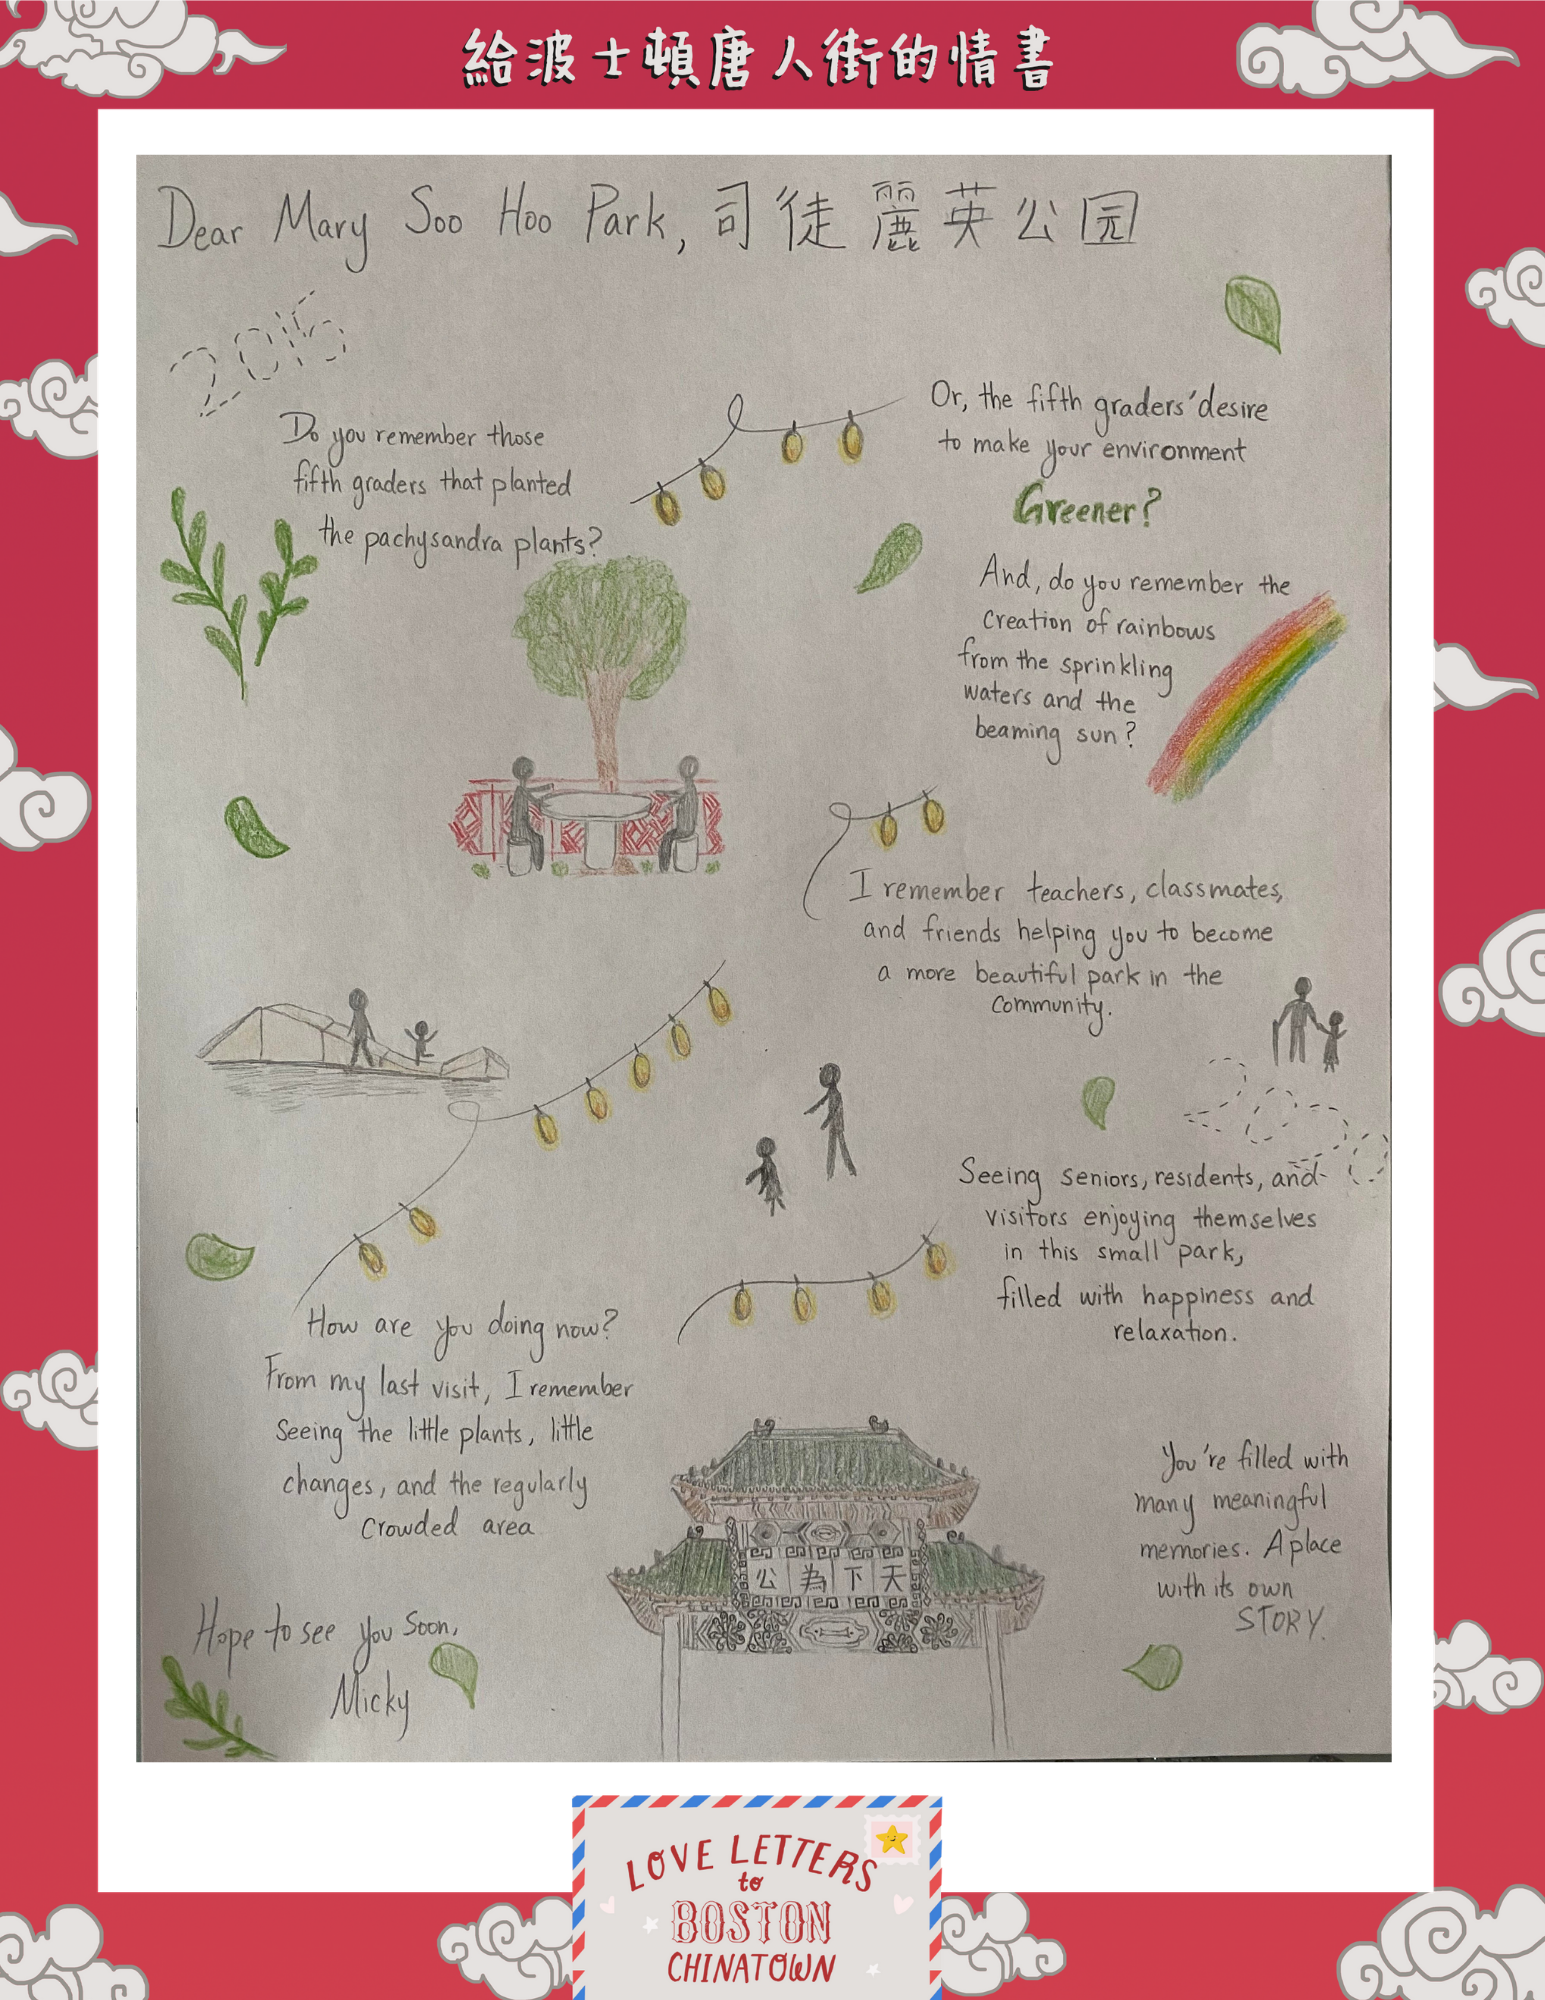 給波士頓唐人街的情書
Dear Mary Soo Hoo Park, 司徒麗英公园
2016
Do you remember those
fifth graders that planted
the pachysandra plants?
Or, the fifth graders' desire
to make your environment
Greener?
And, do you remember the
creation of rainbows
from the sprinkling
waters and the
beaming sun?
I remember teachers, classmates,
and friends helping you to become
a more beautiful park in the
community.
Seeing seniors, residents, and
visitors enjoying themselves
in this small park,
filled with happiness and
relaxation.
How are you doing now?
From my last visit, I remember
Seeing the little plants, little
changes, and the regularly
crowded area
公為下天
You're filled with
many meaningful
memories. A place
with its own
STORY.
Hope to see you soon,
Micky
LOVE LETTERS
to
BOSTON
CHINATOWN